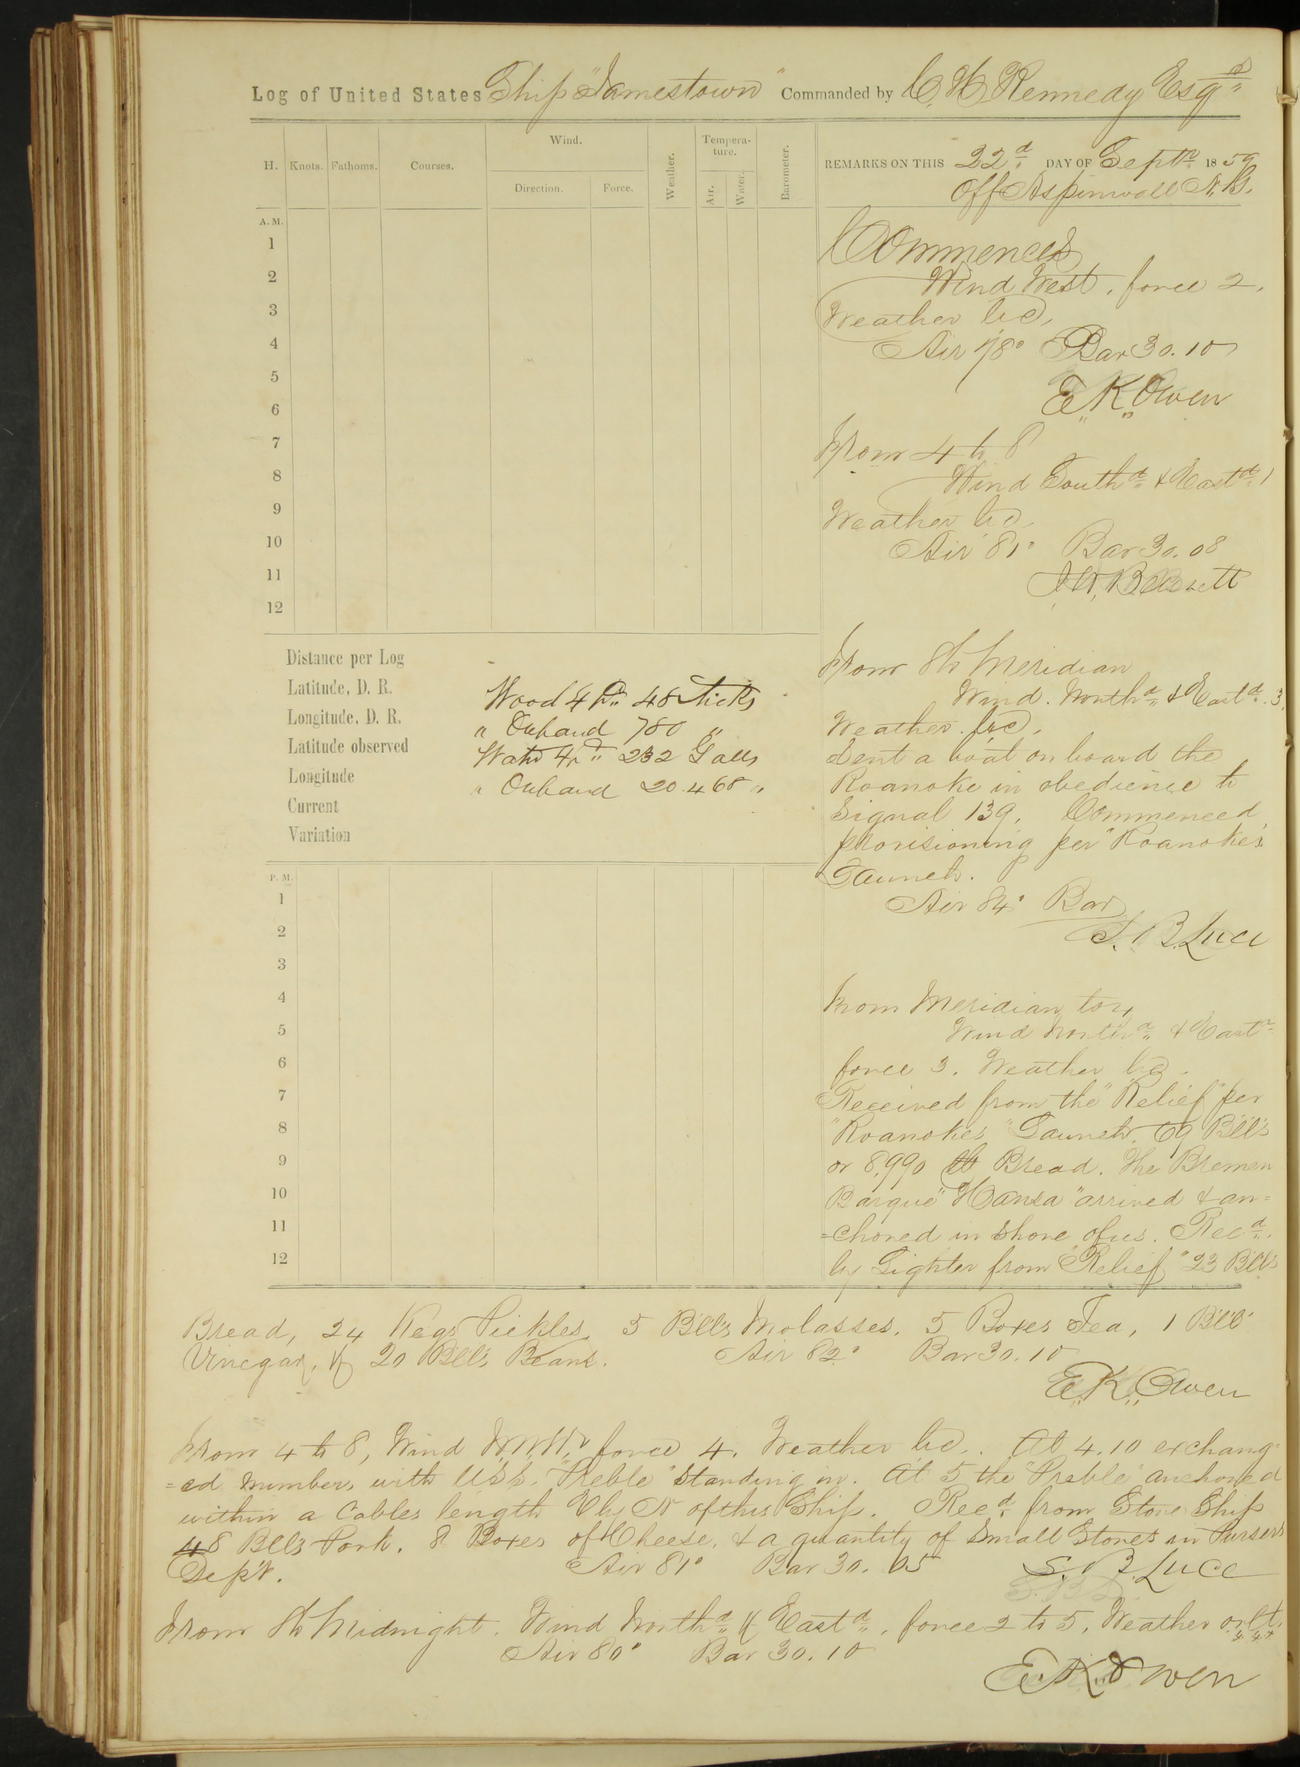 Log of United States Ship "Jamestown" Commanded by C. H. Kennedy Esqr
H. Knots. Fathoms. Courses. Wind. Direction. Force. Weather. Tempera-ture. Air. Water. Barometer.
REMARKS ON THIS 22d DAY OF Septr 1859
Off Aspinwall N.G.
A. M.
1
2
3
4
5
6
7
8
9
10
11
12
Commences
Wind West, force 2,
Weather bc,
Air 78° Bar 30.10
E. K. Owen
From 4 to 8
Wind Southd & Eastd 1
Weather bc
Air 81° Bar 30.08
J. W. Bennett
From 8 to Meridian
Wind. Northd & Eastd. 3,
Weather bc,
Sent a boat on board the
Roanoke in obedience to
Signal 139. Commenced
provisioning per "Roanoke's
Launch.
Air 84° Bar
S. B. Luce
Distance per Log
Latitude, D. R.
Longitude, D. R.
Latitude observed
Longitude
Current
Variation
Wood Expd 48 Sticks
" Onhand 780 "
Water Expd 232 Galls
" Onhand 20.468 "
P. M.
1
2
3
4
5
6
7
8
9
10
11
12
From Meridian to 4
Wind Northd & Eastd
force 3. Weather bc.
Received from the "Relief" per
"Roanoke's" Launch 69 Bbls
or 8,990 lb Bread. The Bremen
Barque "Hansa" arrived & an=
=chored in shore of us. Recd.
by Lighter from "Relief" 23 Bbls
Bread, 24 Kegs Pickles, 5 Bbls Molasses, 5 Boxes Tea, 1 Bbl
Vinegar, & 20 Bbls Beans. Air 82° Bar 30.10
E. K. Owen
From 4 to 8, Wind N.N.W. force 4. Weather bc. At 4.10 exchang=
=ed numbers with U.S.S. "Preble" standing in. At 5 the "Preble" anchored
within a Cables length to the N of this Ship. Recd from Store Ship
48 Bbls Pork, 8 Boxes of Cheese, & a quantity of Small Stores in Pursers
Dep't. Air 81° Bar 30.05 S. B. Luce
From 8 to Midnight. Wind Northd & Eastd, force 2 to 5, Weather o.r.l.t.
Air 80° Bar 30.10
E. K. Owen